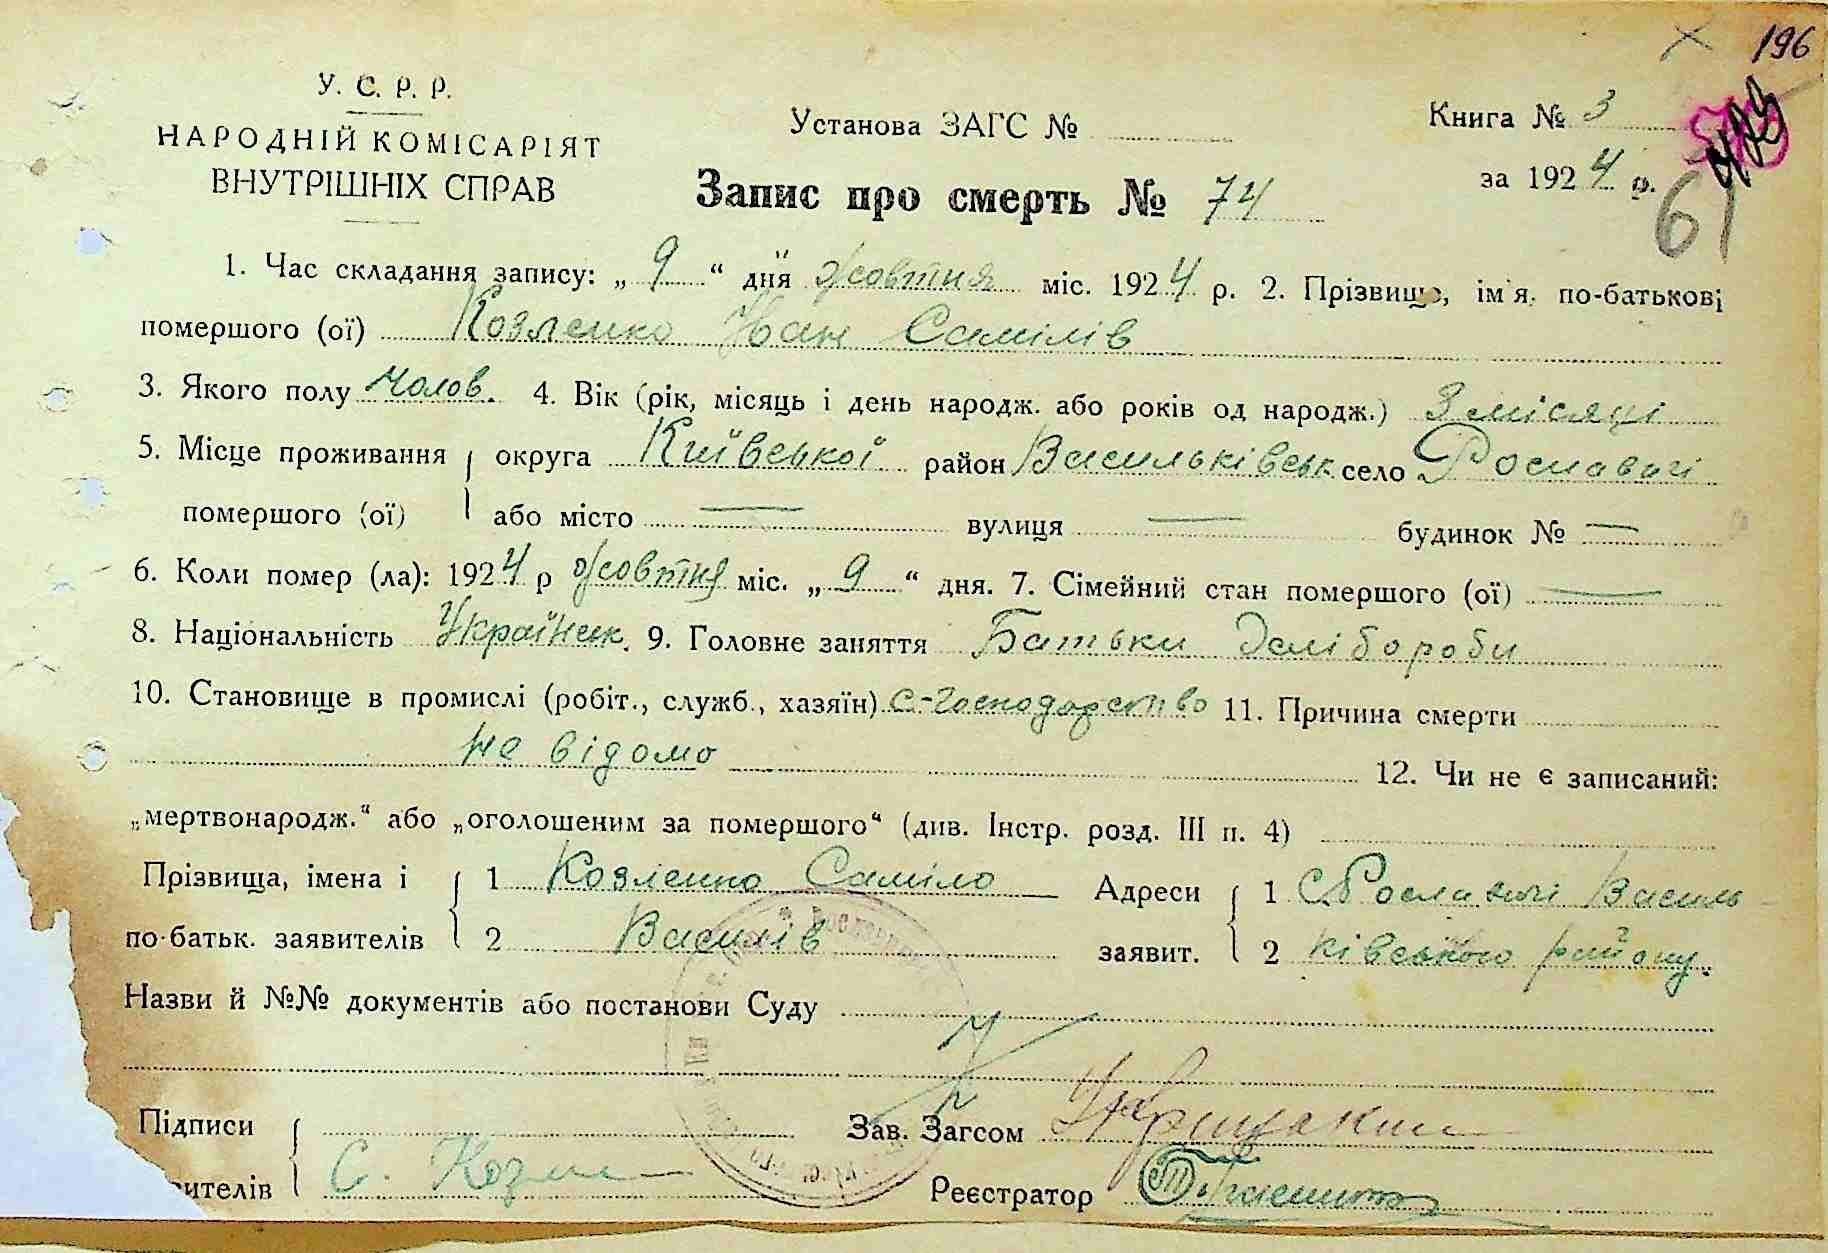 196
У. С. Р. Р.
НАРОДНІЙ КОМІСАРІЯТ
ВНУТРІШНІХ СПРАВ
Установа ЗАГС №
Книга № 3
за 1924 р.
61
Запис про смерть № 74
1. Час складання запису: „ 9 “ дня жовтня міс. 1924 р. 2. Прізвище, ім'я, по-батькові
помершого (ої) Козленко Іван Самілів
3. Якого полу Чолов. 4. Вік (рік, місяць і день народж. або років од народж.) 3 місяці
5. Місце проживання округа Київської район Васильківськ село Рославичі
помершого (ої) або місто — вулиця — будинок № —
6. Коли помер (ла): 1924 р жовтня міс. „ 9 “ дня. 7. Сімейний стан помершого (ої) —
8. Національність Українец. 9. Головне заняття Батьки хлібороби
10. Становище в промислі (робіт., служб., хазяїн) с-господарство 11. Причина смерти
не відомо 12. Чи не є записаний:
„мертвонародж.“ або „оголошеним за помершого“ (див. Інстр. розд. III п. 4)
Прізвища, імена і 1 Козленко Саміло Адреси 1 С. Рославичі Василь
по-батьк. заявителів 2 Василів заявит. 2 ківського району.
Назви й №№ документів або постанови Суду
Підписи Зав. Загсом
ителів С. Козле Реєстратор